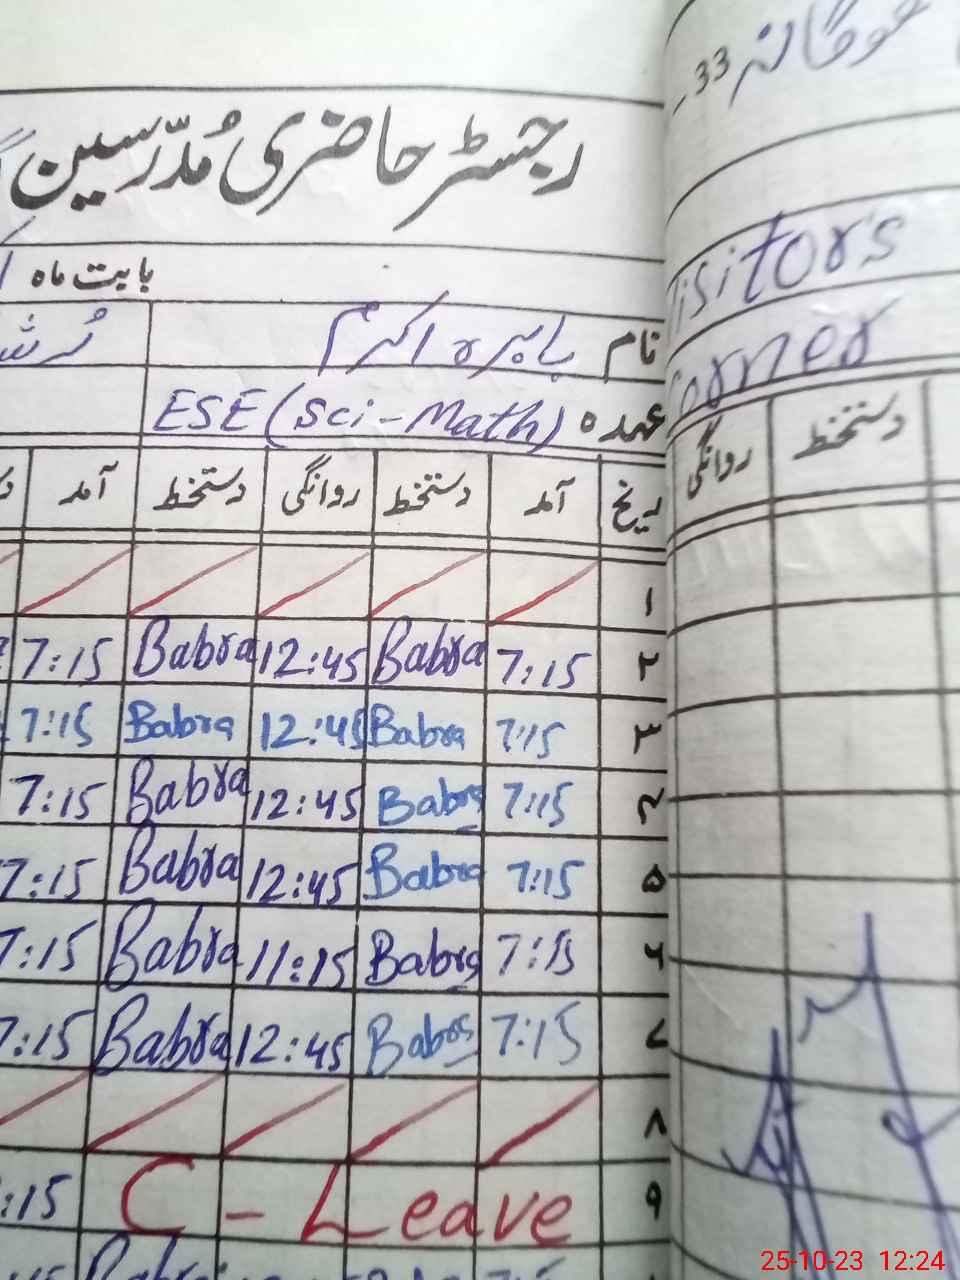 رجسٹر حاضری مُدّرسین
بابت ماہ
نام بابرہ اکرم
عہدہ ESE (Sci-Math)
آمد دستخط روانگی دستخط آمد
۱
۲ 7:15 Babra 12:45 Babra 7:15
۳ 7:15 Babra 12:45 Babra 7:15
۴ 7:15 Babra 12:45 Babra 7:15
۵ 7:15 Babra 12:45 Babra 7:15
۶ 7:15 Babra 11:15 Babra 7:15
۷ 7:15 Babra 12:45 Babra 7:15
۸
۹ C - Leave :15
33
visitors
corner
دستخط روانگی
25-10-23 12:24